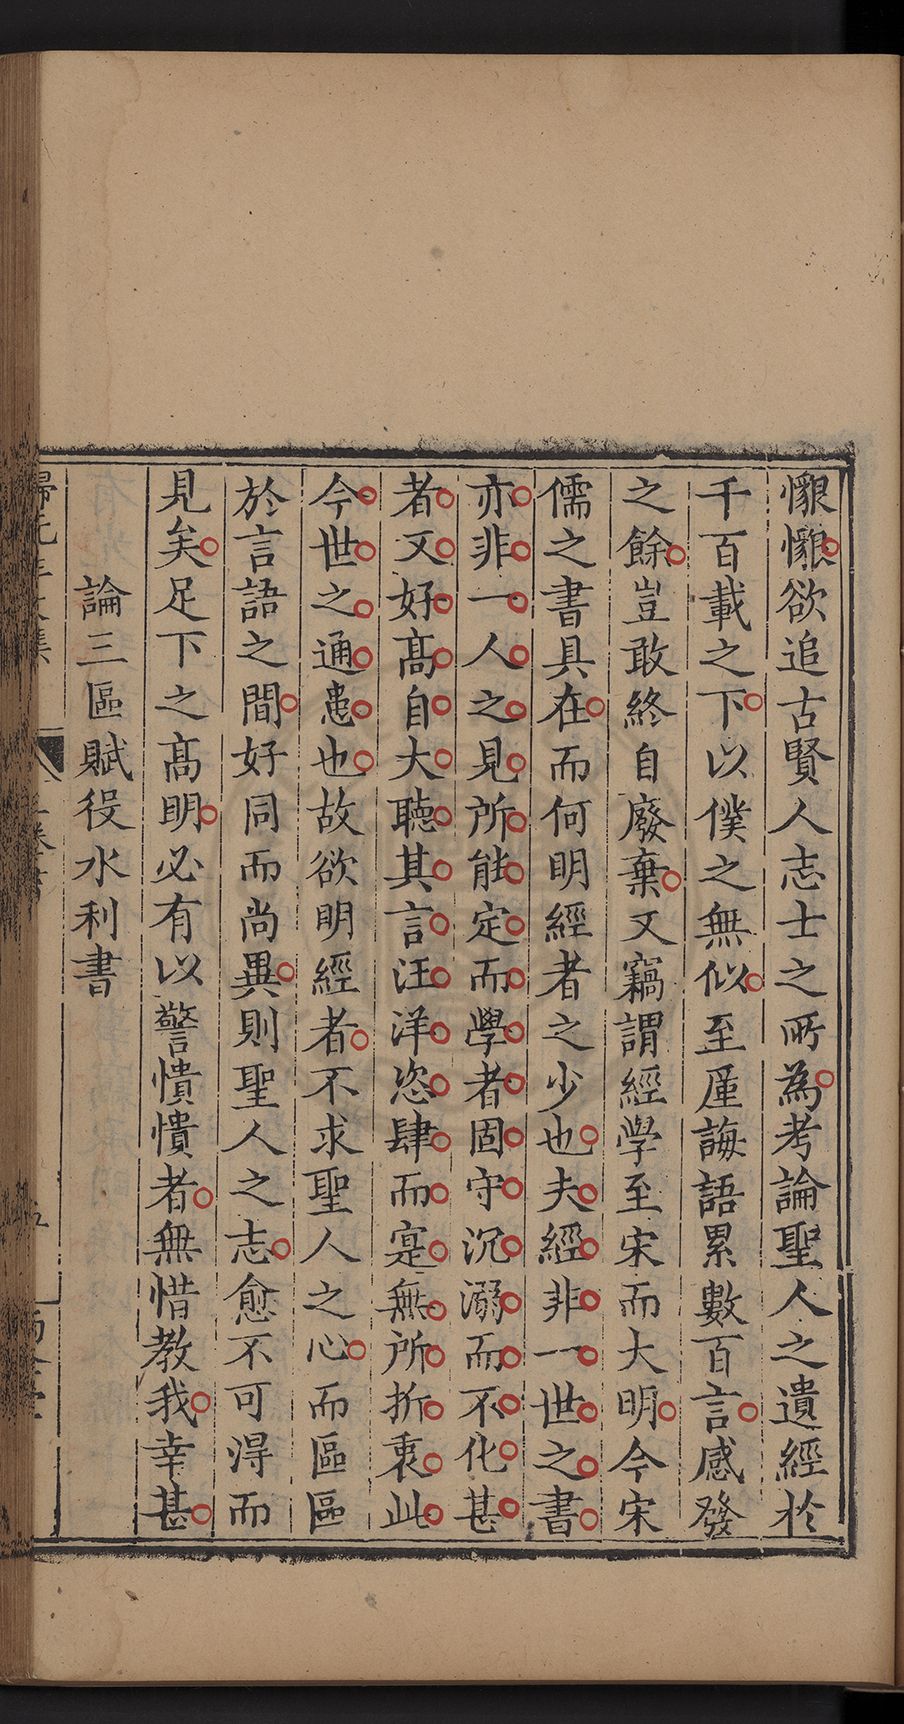 懇懇欲追古賢人志士之所為考論聖人之遺經於
千百載之下以僕之無似至厪誨語累數百言感發
之餘豈敢終自廢棄又竊謂經學至宋而大明今宋
儒之書具在而何明經者之少也夫經非一世之書
亦非一人之見所能定而學者固守沉溺而不化甚
者又好髙自大聽其言汪洋恣肆而寔無所折衷此
今世之通患也故欲明經者不求聖人之心而區區
於言語之間好同而尚異則聖人之志愈不可得而
見矣足下之髙明必有以警憒憒者無惜教我幸甚
論三區賦役水利書